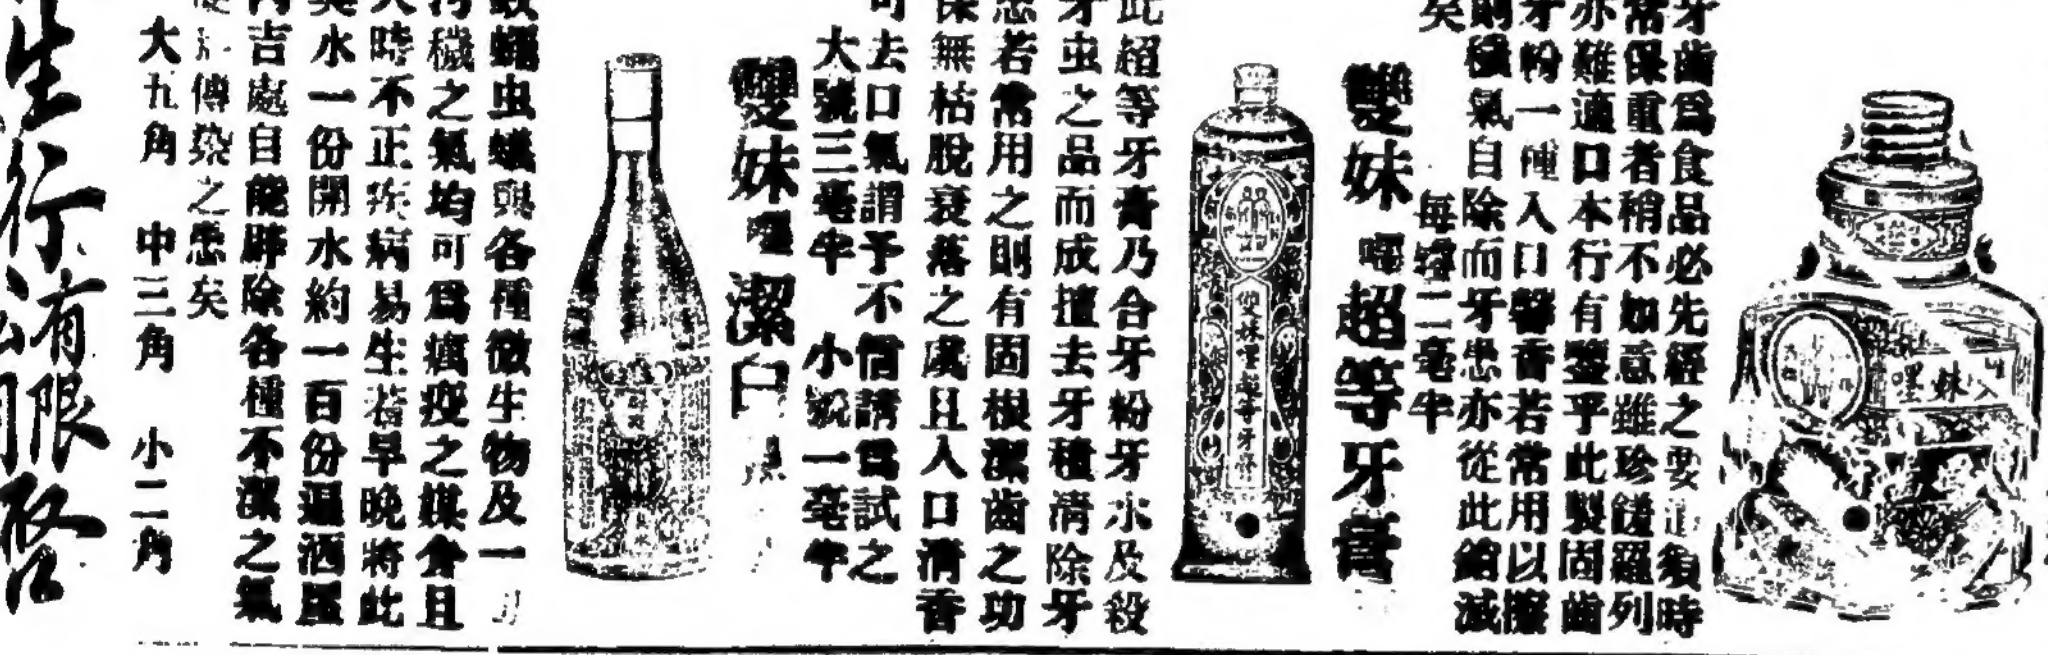 牙齒爲食品必先經之要道須時
常保重者稍不如意雖珍饈羅列
亦難適口本行有鑒乎此製固齒
牙粉一種入口馨香若常用以擦
則穢氣自除而牙患亦從此銷滅
矣
每樽二毫半
雙妹嚜超等牙膏
此超等牙膏乃合牙粉牙水及殺
牙虫之品而成擅去牙積清除牙
患若常用之則有固根潔齒之功
保無枯脫衰落之虞且入口清香
可去口氣謂予不信請爲試之
大號三毫半 小號一毫半
雙妹嚜潔
蚊蠅虫蟻與各種微生物及一
污穢之氣均可爲癘疫之媒介且
天時不正疾病易生若早晚將此
臭水一份開水約一百份遍洒屋
內吉處自能辟除各種不潔之氣
傳染之患矣
大九角 中三角 小二角
生行有限公司啓
雙妹嚜超等牙膏
妹嚜